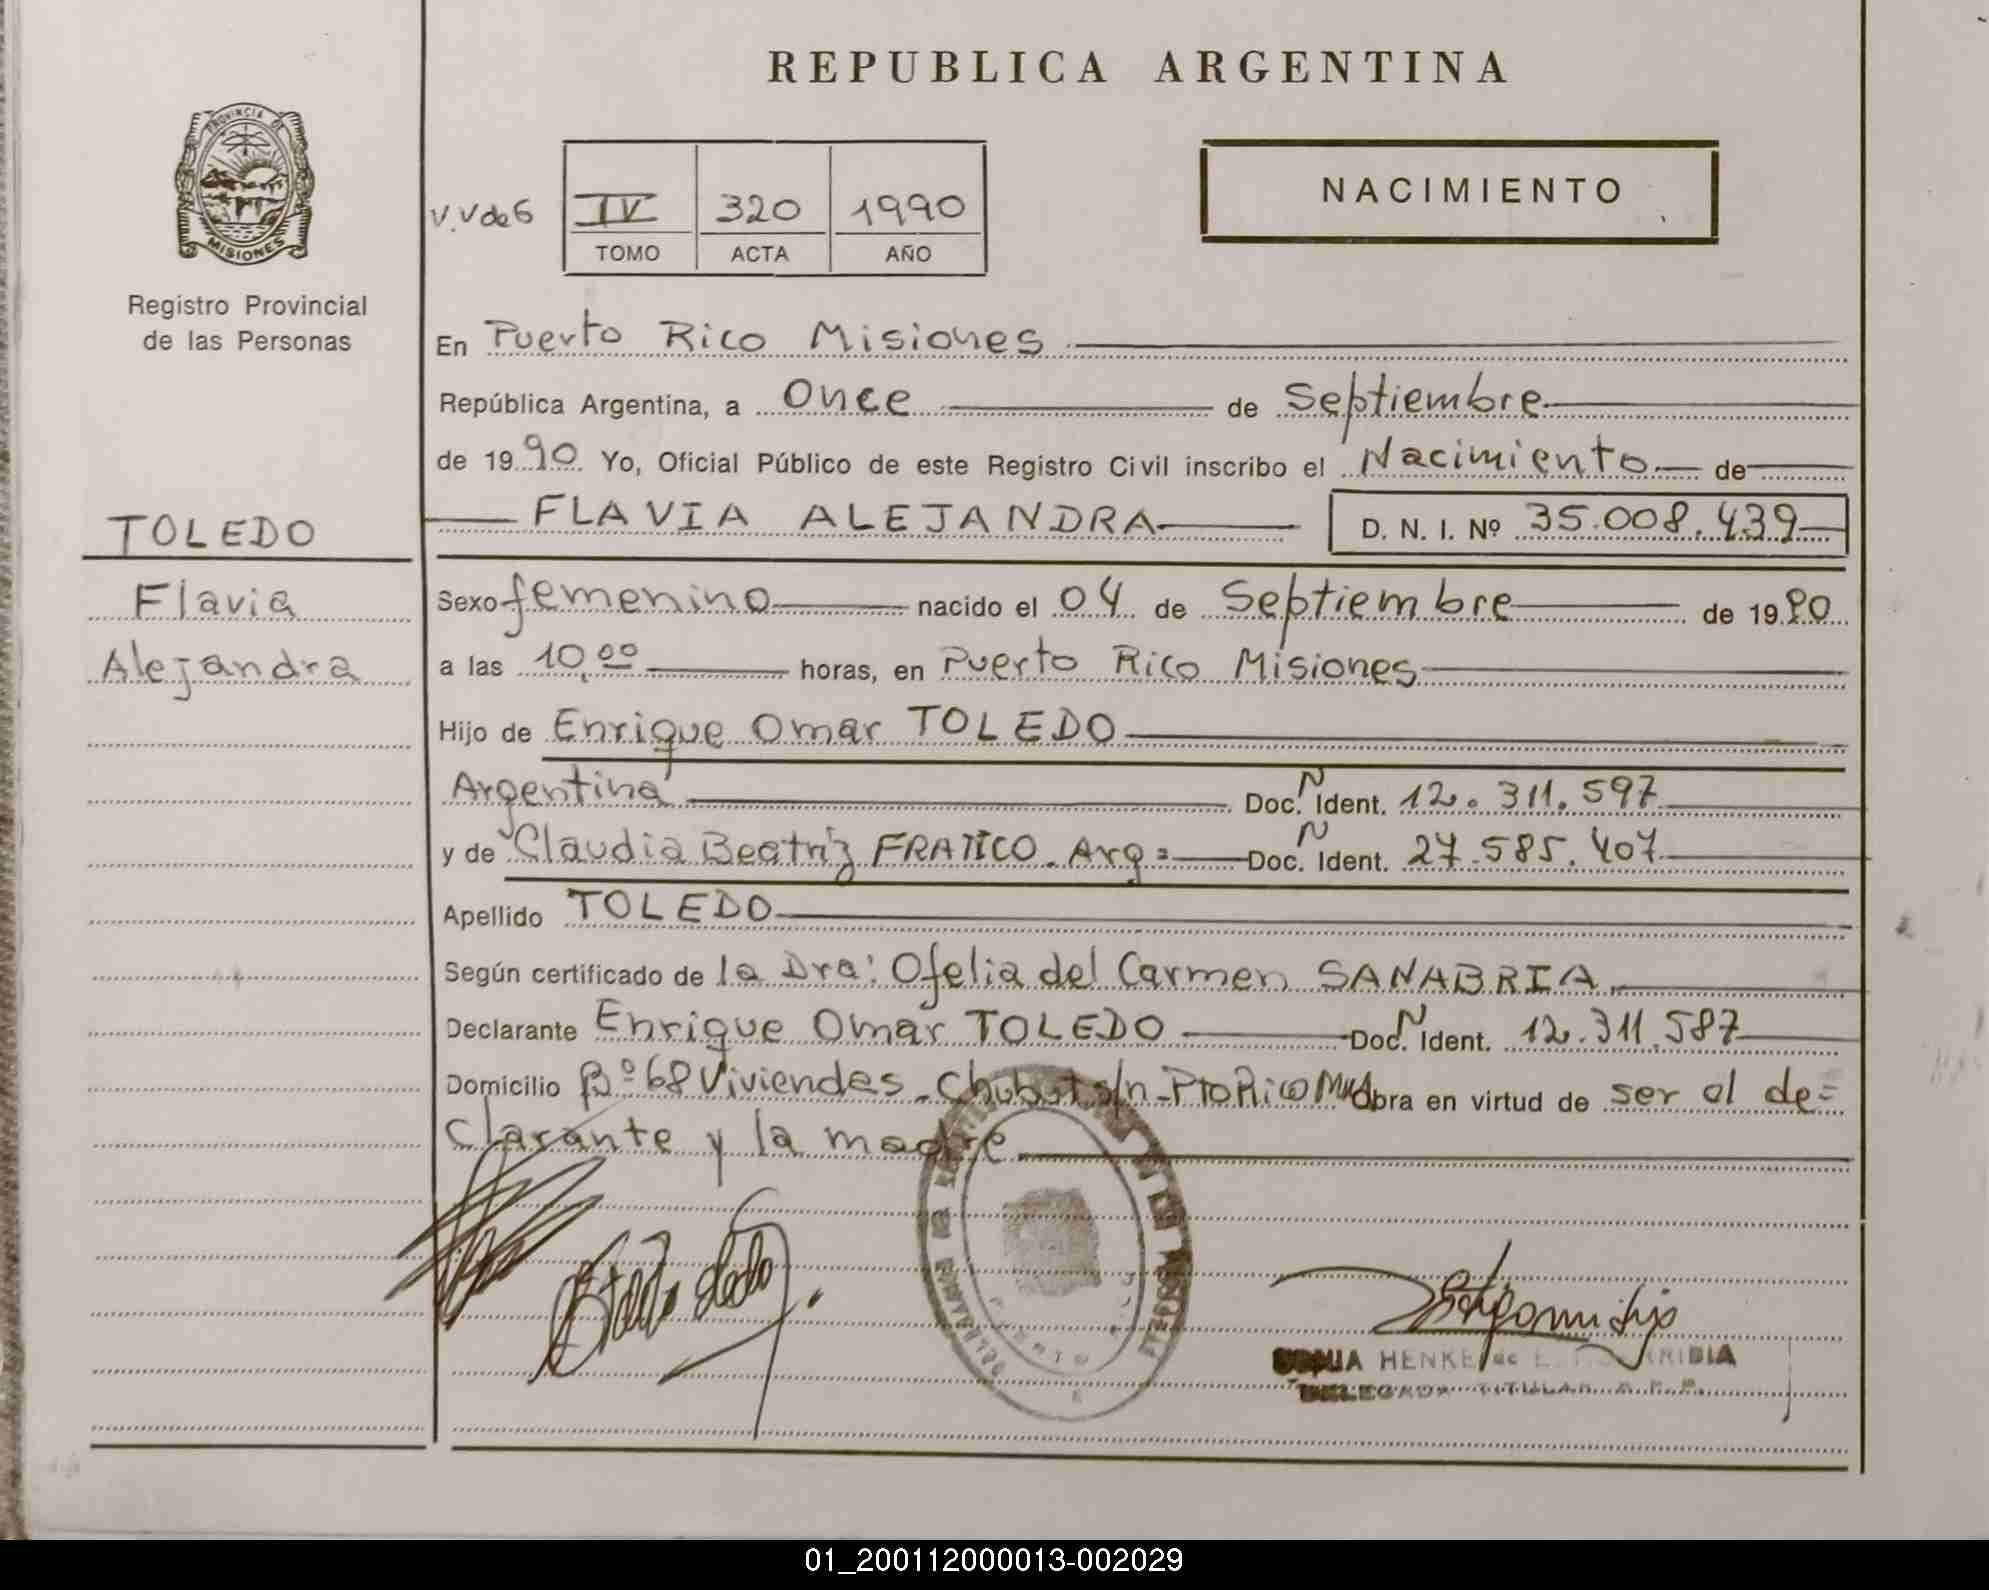 REPUBLICA ARGENTINA
PROVINCIA DE
MISIONES
Registro Provincial
de las Personas
V.V de 6
IV 320 1990
TOMO ACTA AÑO
NACIMIENTO
En Puerto Rico Misiones
República Argentina, a Once de Septiembre
de 1990 Yo, Oficial Público de este Registro Civil inscribo el Nacimiento de
TOLEDO
FLAVIA ALEJANDRA D. N. I. Nº 35.008.439
Flavia
Alejandra
Sexo femenino nacido el 04 de Septiembre de 1990
a las 10,00 horas, en Puerto Rico Misiones
Hijo de Enrique Omar TOLEDO
Argentina Doc. N Ident. 12.311.597
y de Claudia Beatriz FRATICO. Arg= Doc. N Ident. 27.585.407
Apellido TOLEDO
Según certificado de la Dra: Ofelia del Carmen SANABRIA
Declarante Enrique Omar TOLEDO Doc. N Ident. 12.311.587
Domicilio Bº 68 Viviendas - Chubut s/n - Pto Rico Mnes Obra en virtud de ser el de=
clarante y la madre
HENKE de
DELEGADA TITULAR R. P. P.
01_200112000013-002029